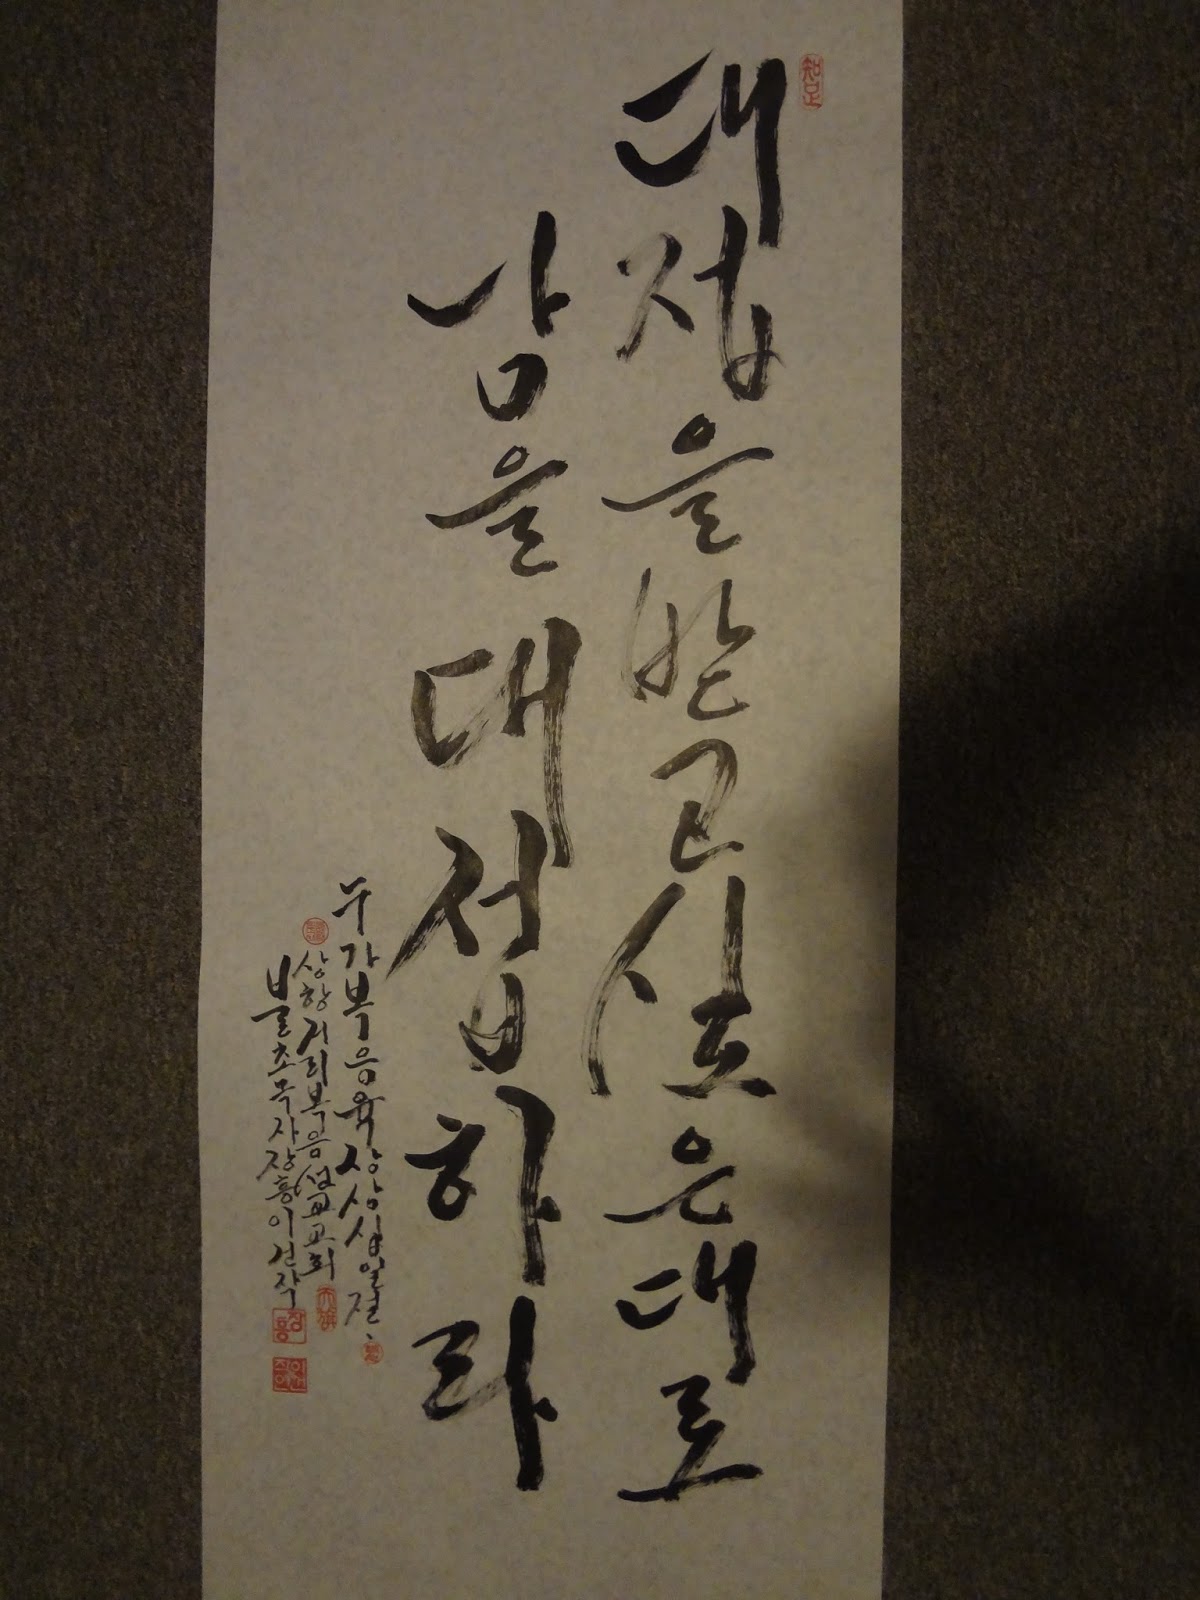 知足
대접을 받고 싶은대로
남을 대접하라
누가복음 육장 삼십일절
상항거리복음선교교회
불초목자 장홍이건작